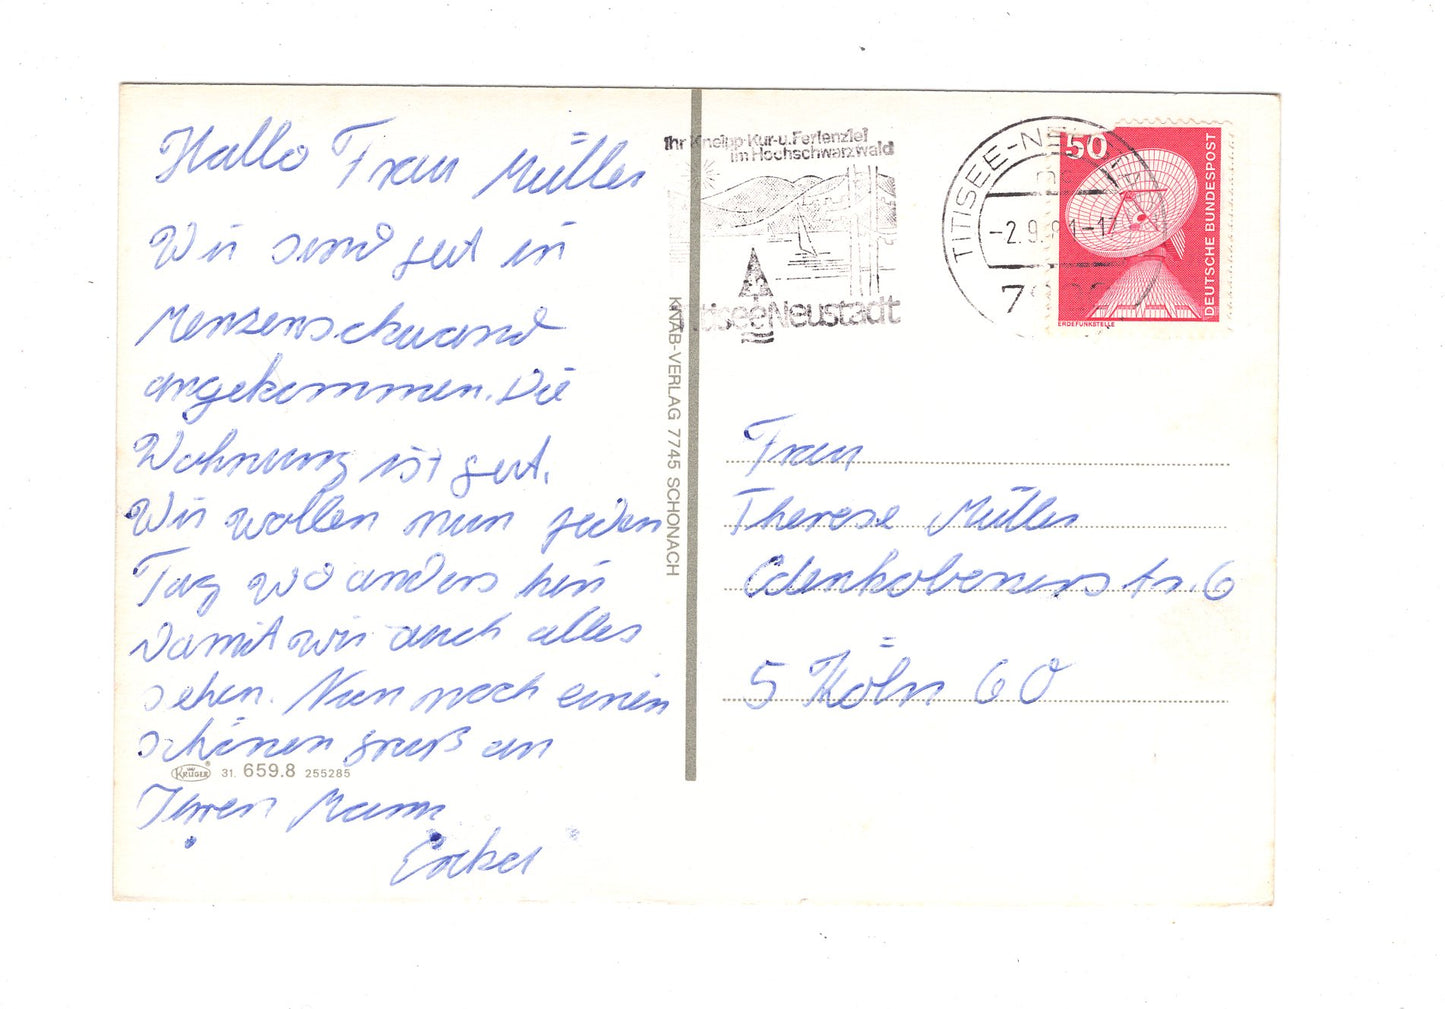 Hallo Frau Müller
Wir sind gut in
Menzenschwand
angekommen. Die
Wohnung ist gut.
Wir wollen nun jeden
Tag wo anders hin
Damit wir auch alles
sehen. Nun noch einen
schönen Gruß an
Ihren Mann
KRÜGER 31. 659.8 255285
KNAB-VERLAG 7745 SCHONACH
Ihr Kneipp-Kur-u.Ferienziel
im Hochschwarzwald
Titisee Neustadt
TITISEE-NEUSTADT
-2.9.81-17
50
DEUTSCHE BUNDESPOST
ERDEFUNKSTELLE
Frau
Therese Müller
Edenkobenerstr. 6
5 Köln 60